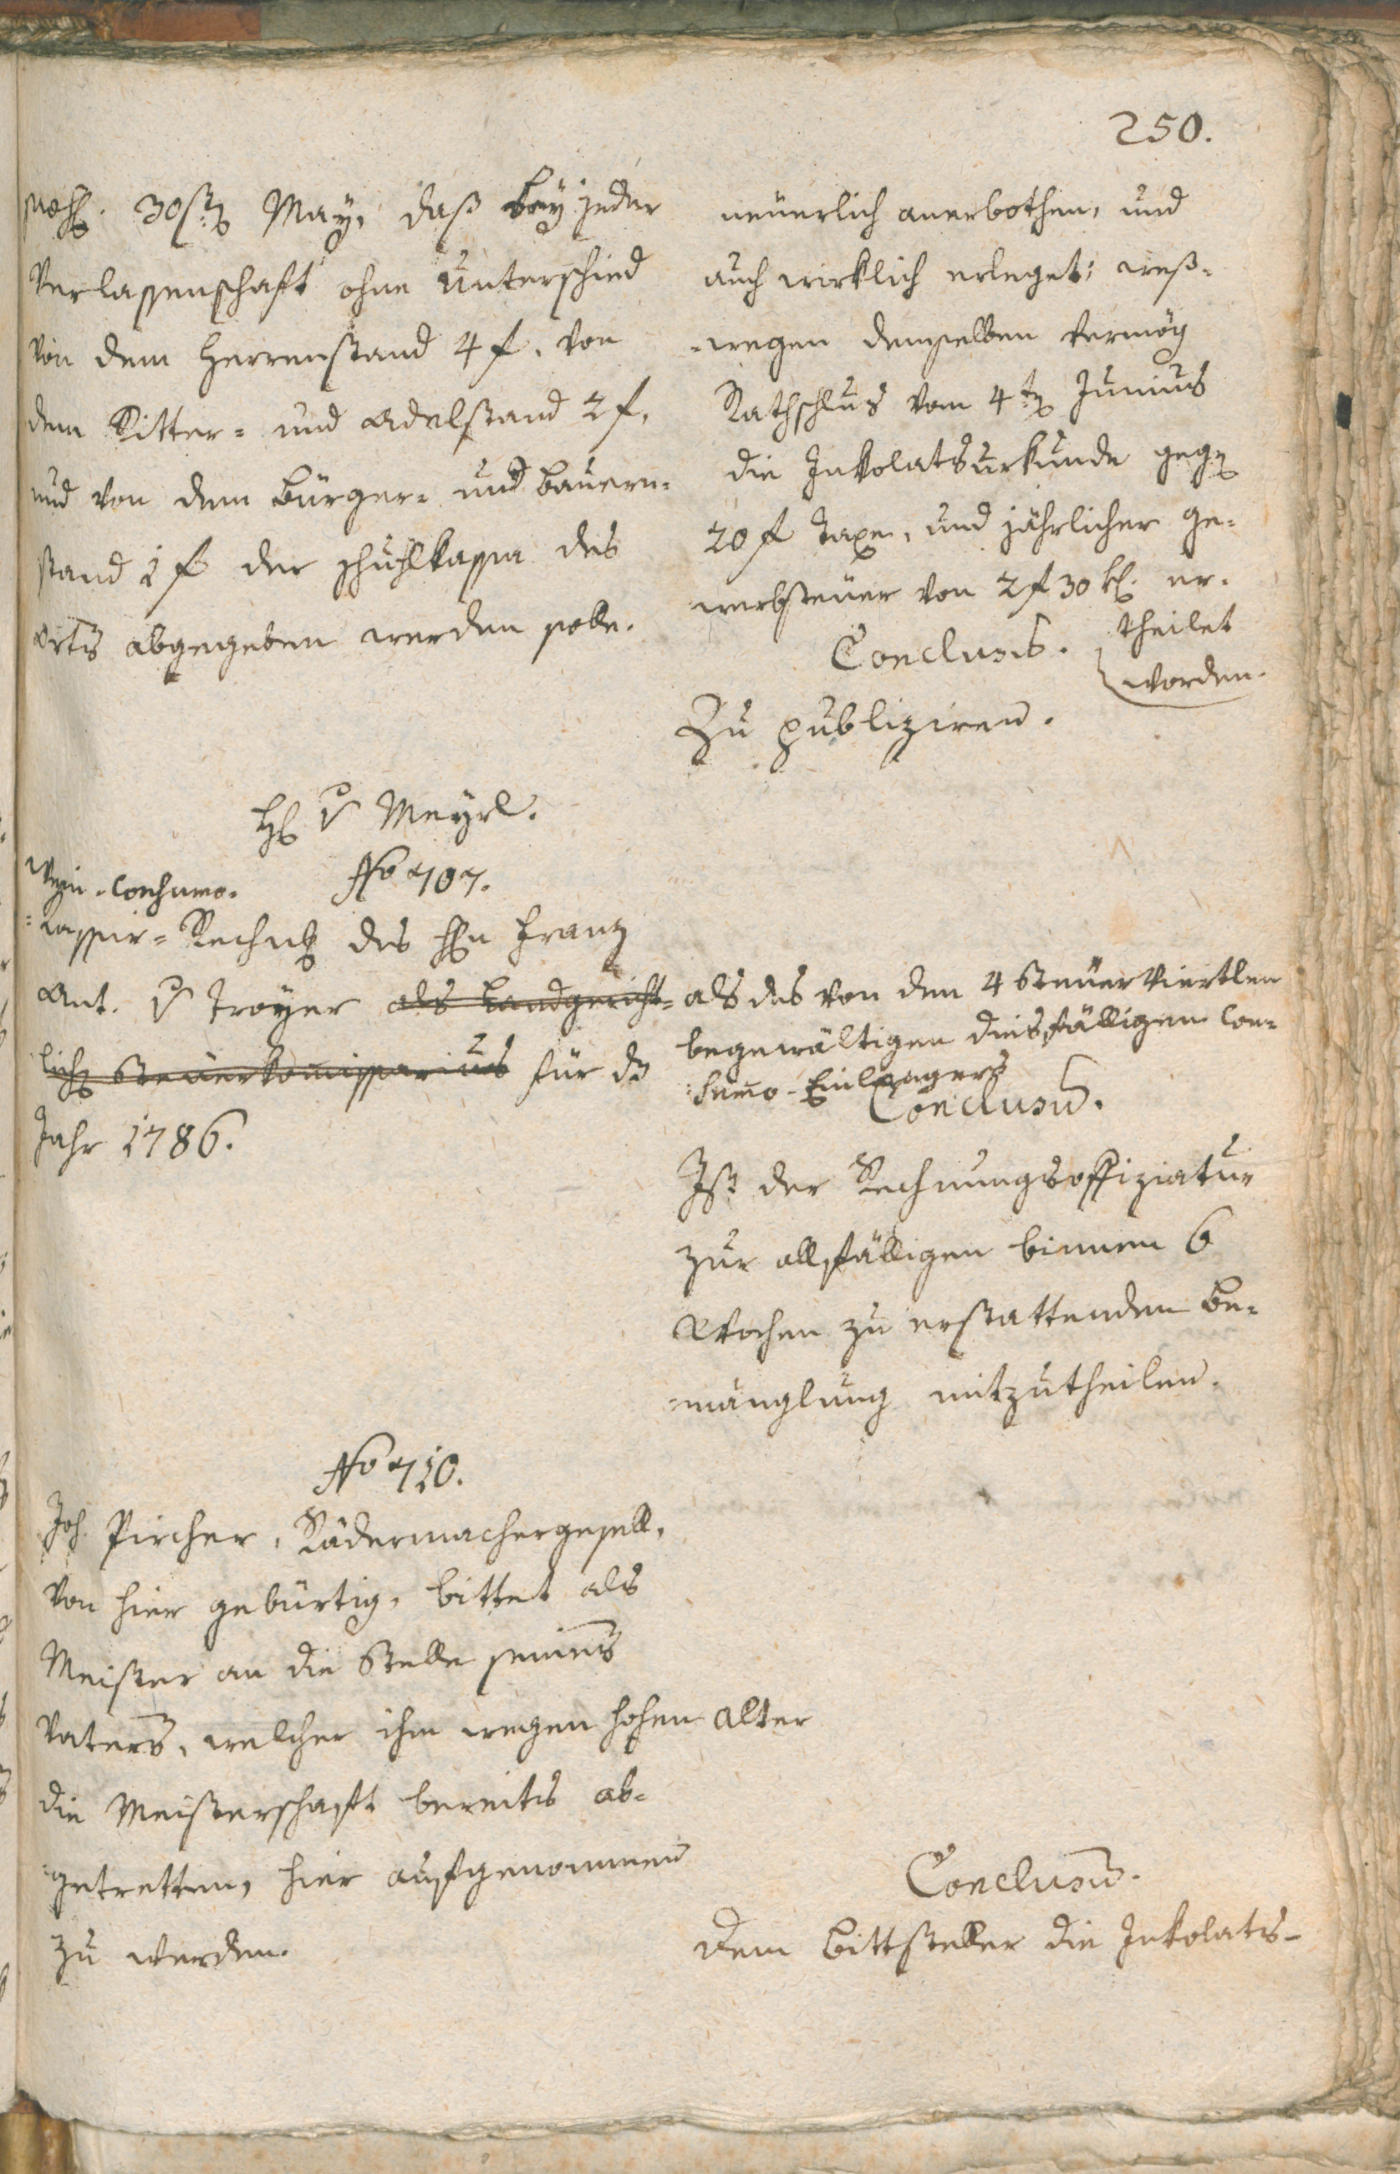 250.
30st May, daß bey jeder
Verlassenschaft ohne Unterschied
von dem Herrenstand 4 f. von
dem Ritter- und Adelstand 2 f,
und von dem Bürger- und Bauern-
stand 1 f der Schuhlkassa des
Orts abgegeben werden solle.
neüerlich anerbothen, und
auch wirklich erleget; weß-
-wegen demselben vermög
Rathschlus vom 4t Junius
die Inkolatsurkunde geg
20 f Taxe, und jährlicher Ge-
werbsteuer von 2 f 30 k. er-
theilet
worden.
Conclusum.
Zu publiziren.
H v Meyrl.
No 707.
Wein-Consumo-
-Kassier-Rechng des Hn Franz
Ant. v Troyer als Landgericht-
lich Steuerkommissarius für dz
Jahr 1786.
als des von den 4 Steuer Viertlen
begewältigen diesfälligen Con-
-sumo-Einlangers
Conclusum.
Ist der Rechnungsoffiziatur
zur allfälligen binnen 6
Wochen zu erstattenden Be-
-mänglung mitzutheilen.
No 710.
Joh. Pircher, Rädermachergesell,
von hier gebürtig, bittet als
Meister an die Stelle seines
Vaters, welcher ihm wegen hohen Alter
die Meisterschaft bereits ab-
-getretten, hier aufgenommen
zu werden.
Conclusum.
Dem Bittsteller die Inkolats-